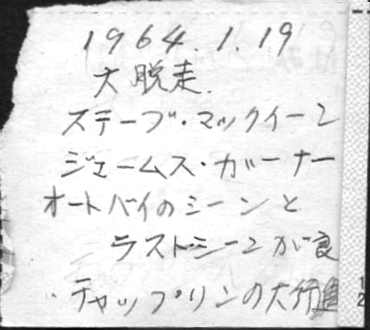 1964.1.19
大脱走.
ステーブ・マックイーン
ジェームス・ガーナー
オートバイのシーンと
ラストシーンが良
チャップリンの大行進